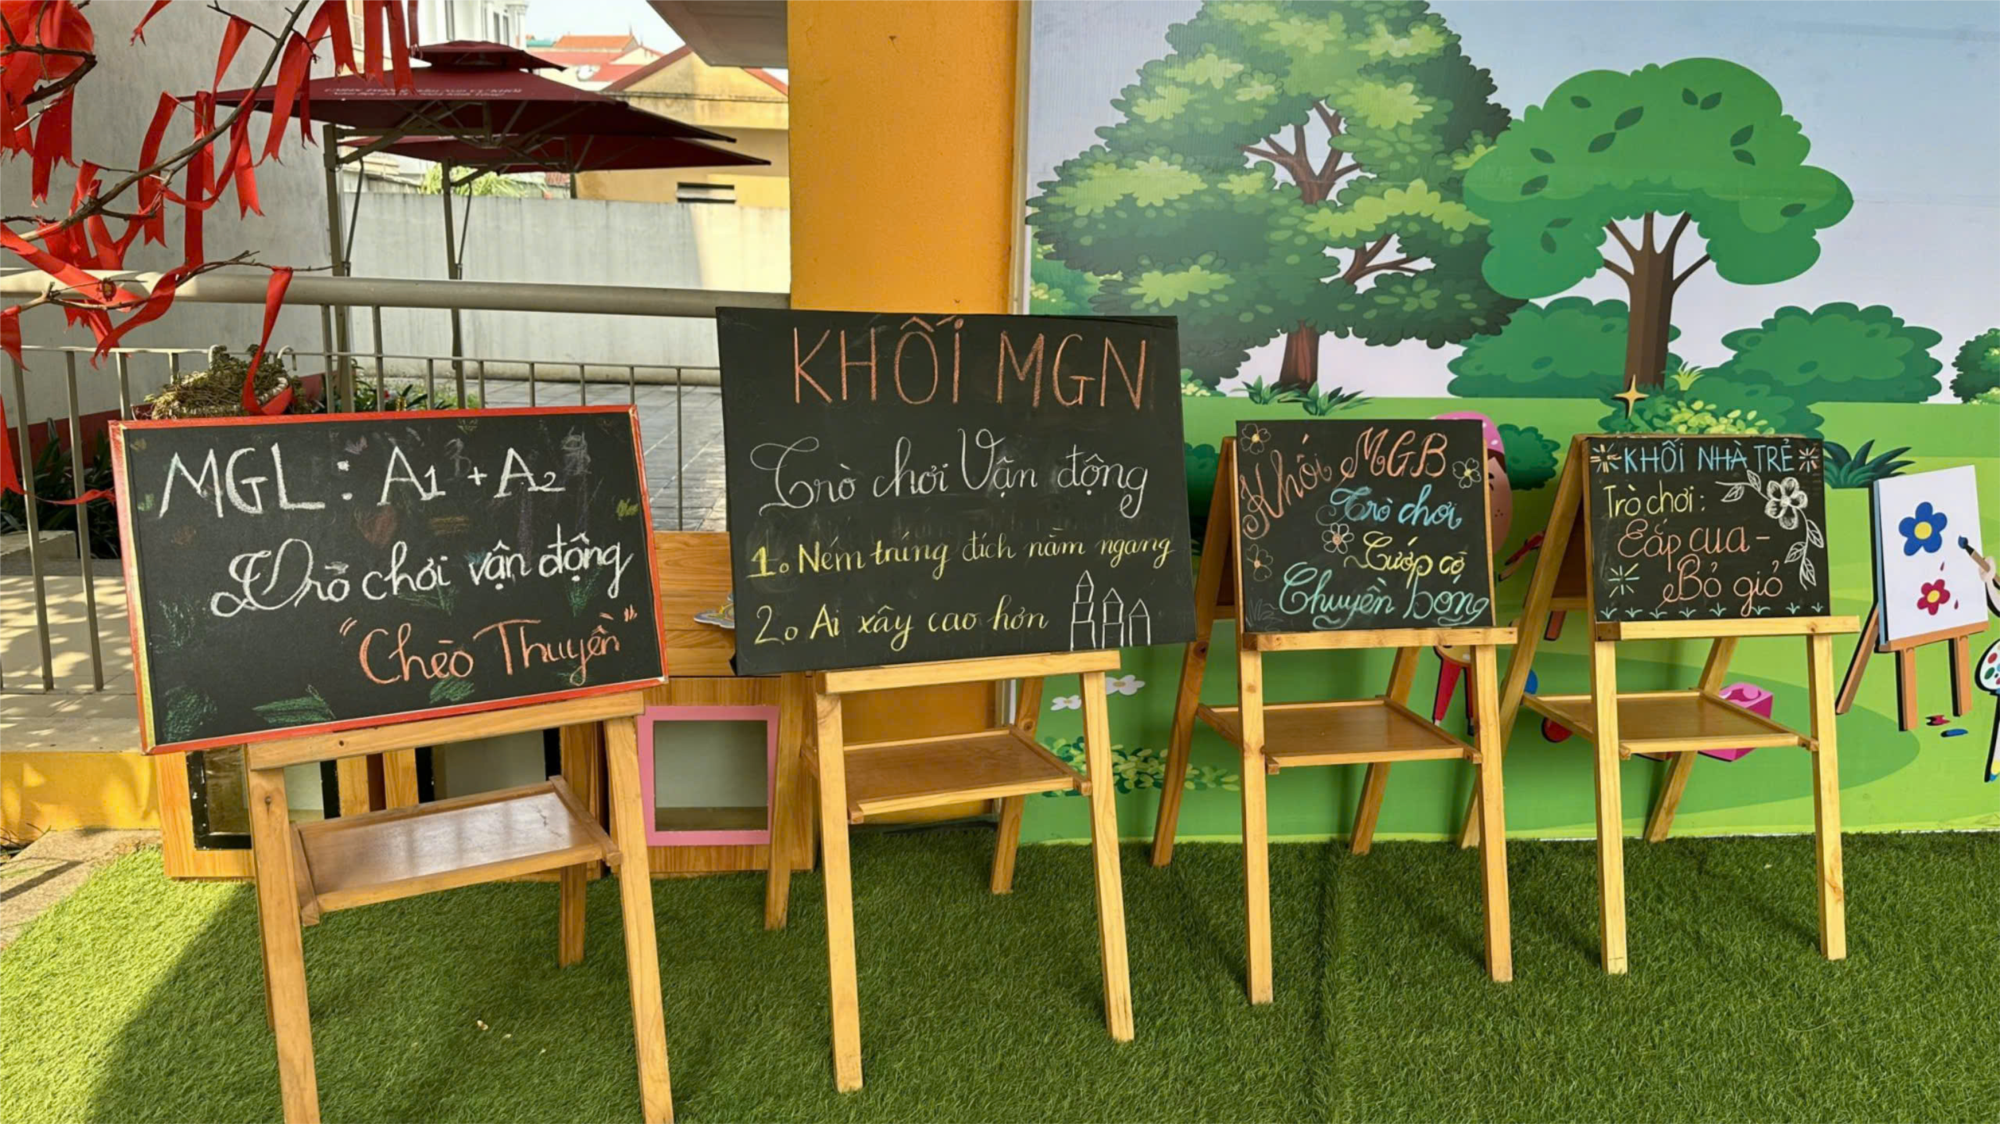 MGL: A1 + A2
Trò chơi vận động
"Chèo Thuyền"
KHỐI MGN
Trò chơi Vận động
1. Ném trúng đích nằm ngang
2. Ai xây cao hơn
Khối MGB
Trò chơi
Cướp cờ
Chuyền bóng
KHỐI NHÀ TRẺ
Trò chơi:
Cắp cua -
Bỏ giỏ